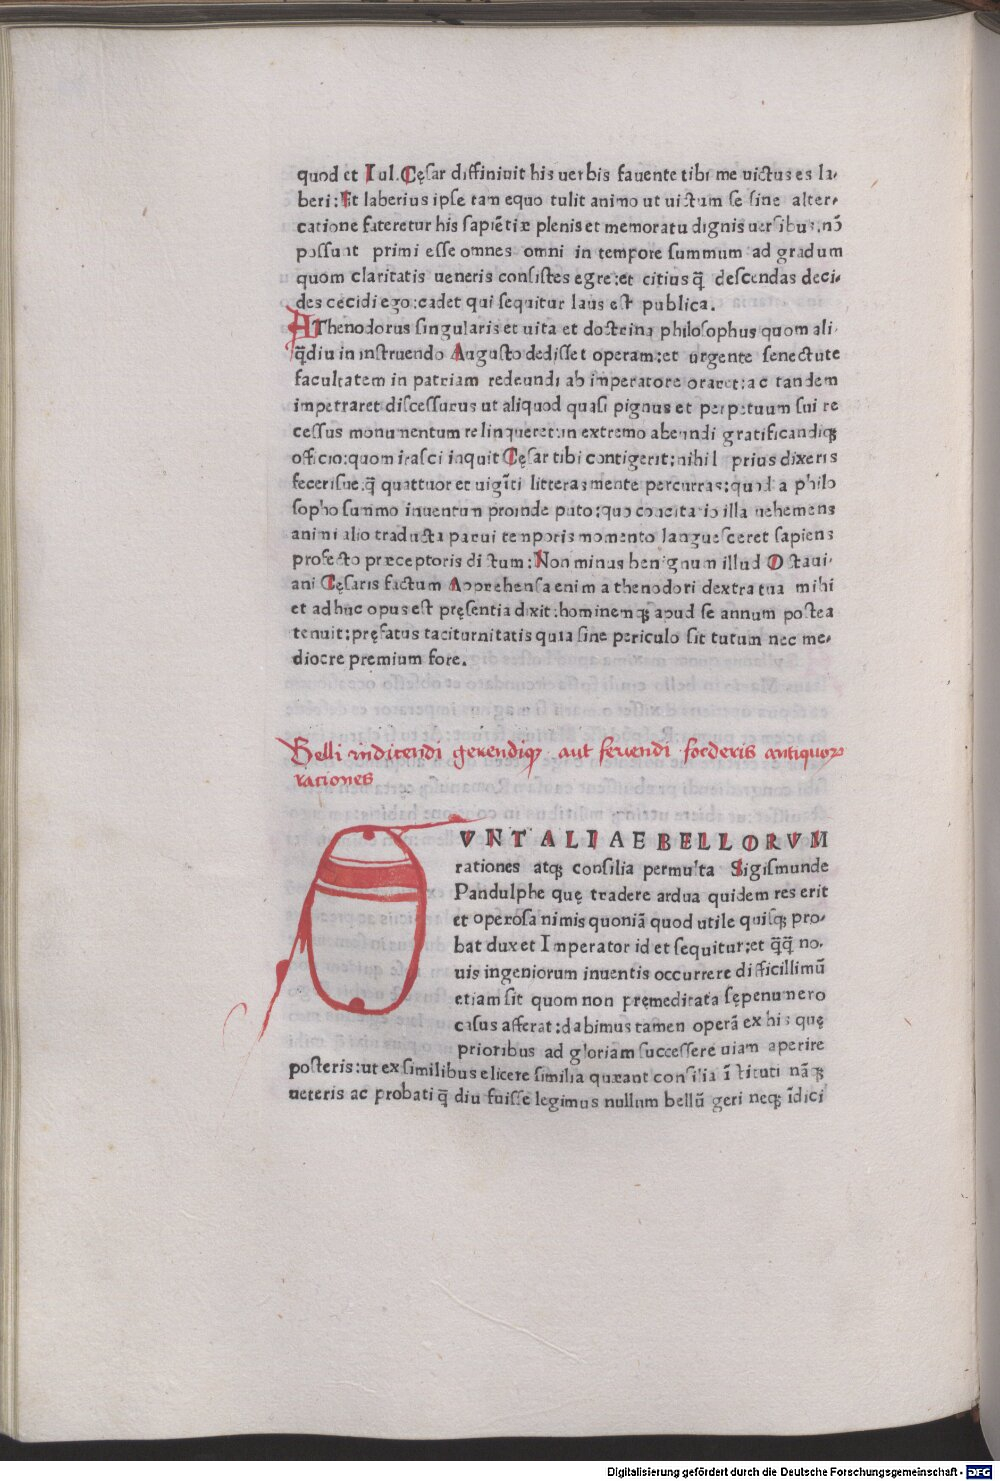 quod et Iul. Cęſar diffiniuit his uerbis fauente tibi me uictus es la⸗
beri: Et laberius ipſe tam equo tulit animo ut uictum ſe ſine alter⸗
catione fateretur his ſapiẽtiæ plenis et memoratu dignis uerſibus. nõ
poſſunt primi eſſe omnes omni in tempore ſummum ad gradum
quom claritatis ueneris conſiſtes egre: et citius q̃ deſcendas deci⸗
des cecidi ego: cadet qui ſequitur laus eſt publica.
AThenodorus ſingularis et uita et doctrina philoſophus quom ali
q̃diu in inſtruendo Auguſto dediſſet operam: et urgente ſenectute
facultatem in patriam redeundi ab imperatore oraret: ac tandem
impetraret diſceſſurus ut aliquod quaſi pignus et perpetuum ſui re
ceſſus monumentum relinqueret: in extremo abeundi gratificandiqꝫ
officio: quom iraſci inquit Cęſar tibi contigerit: nihil prius dixeris
feceriſue. q̃ quattuor et uigĩti litteras mente percurras: quod a philo
ſopho ſummo inuentum proinde puto: quo concitatio illa uehemens
animi alio traducta parui temporis momento langueſceret ſapiens
profecto præceptoris dictum: Non minus benignum illud Octaui⸗
ani Cęſaris factum Apprehenſa enim athenodori dextra tua mihi
et adhuc opus eſt pręſentia dixit: hominemqꝫ apud ſe annum poſtea
tenuit: pręfatus taciturnitatis quia ſine periculo ſit tutum nec me⸗
diocre premium fore.
Belli indicendi gerendiqꝫ aut feriendi foederis antiquoꝝ
rationes
VNT ALIAE BELLORVM
rationes atqꝫ conſilia permulta Sigiſmunde
Pandulphe quę tradere ardua quidem res erit
et operoſa nimis quoniã quod utile quiſqꝫ pro⸗
bat dux et Imperator id et ſequitur: et q̃q̃ no.
uis ingeniorum inuentis occurrere difficillimũ
etiam ſit quom non pręmeditata ſępenumero
caſus afferat: dabimus tamen operã ex his quę
prioribus ad gloriam ſucceſſere uiam aperire
poſteris: ut ex ſimilibus elicere ſimilia quæant conſilia ĩſtituti nãqꝫ
ueteris ac probati q̃ diu fuiſſe legimus nullum bellũ geri neqꝫ ĩdici
Digitalisierung gefördert durch die Deutsche Forschungsgemeinschaft - DFG